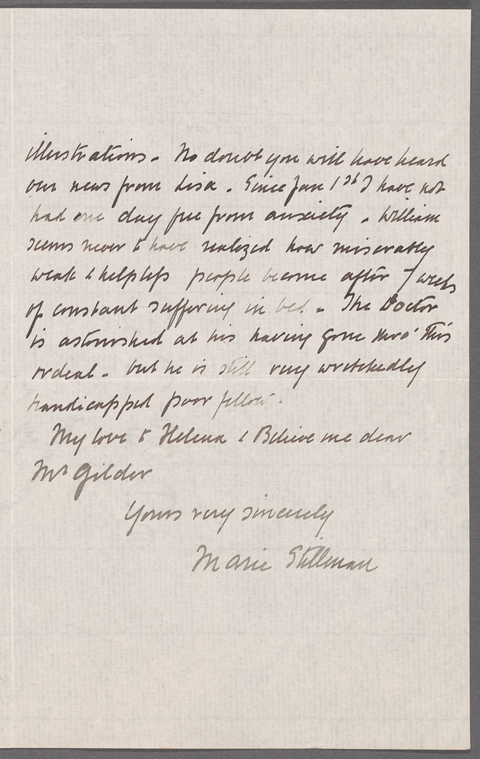 illustrations. No doubt you will have heard
our news from Lisa. Since Jan 1st I have not
had one day free from anxiety. William
seems never to have realized how miserably
weak & helpless people become after 7 weeks
of constant suffering in bed. The Doctor
is astonished at his having gone thro' this
ordeal. but he is still very wretchedly
handicapped poor fellow.
My love to Helena & Believe me dear
Mr Gilder
Yours very sincerely
Marie Stillman